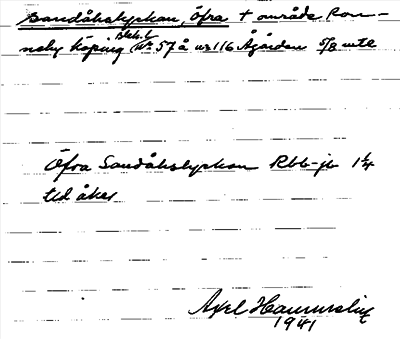 Sandåkslyckan, Öfra + område, Ron-
neby köping Blek.l. Nr 57 å nr 116 Ågården 5/8 mtl
Öfra Sandåkslyckan Rbl-jb 1 1/4
tld åker
Axel Hammarlin
1941